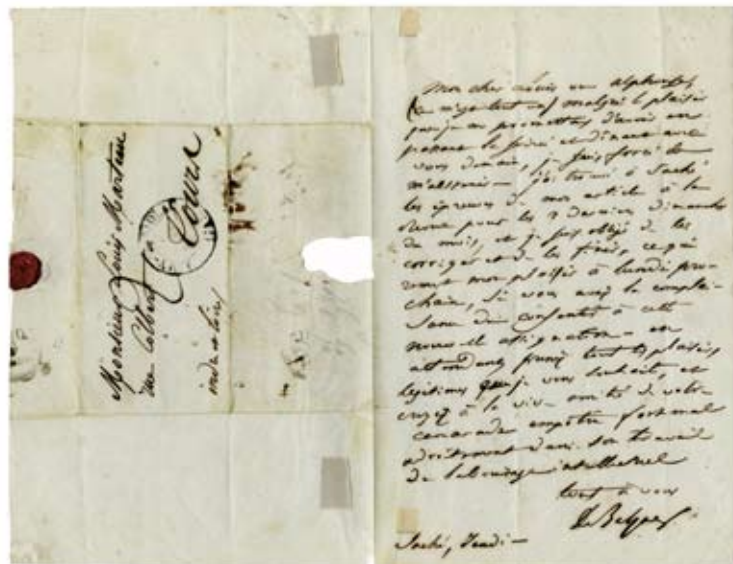 Monsieur Louis Martin
rue Colbert
Tours
indre et loire
Mon cher Louis ou alphonse,
malgré le plaisir
que je me promettais d'avoir en
passant la soirée et dînant avec
vous demain, je suis forcé de
j'ai trouvé à Saché
les épreuves de mon article à la
revue pour les 2 derniers dimanches
du mois, et je suis obligé de les
corriger et de les finir, ce qui
remet mon plaisir à lundi pro-
chain, si vous avez la complai-
sance de consentir à cette
nouvelle assignation - en
attendant prenez tous les plaisirs
légitimes que je vous souhaite, et
croyez à la vive amitié de votre
camarade empêtré fort mal
adroitement dans son travail
de labourage intellectuel
tout à vous
de Balzac
Saché, Jeudi -